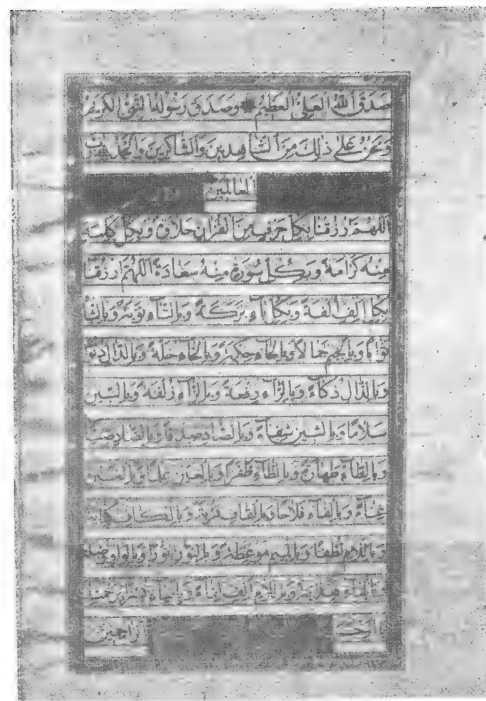 صدق الله العلي العظيم وصدق رسوله النبي الكريم
ونحن على ذلك من الشاهدين والشاكرين والحمد لله رب
العالمين
اللهم ارزقنا بكل حرف من القرآن حلاوة وبكل كلمة
منه كرامة وبكل سورة منه سعادة اللهم ارزقنا
بكل الف الفة وبكل باء بركة وبالتاء توبة وبالثاء
ثوابا وبالجيم جمالا وبالحاء حكمة وبالخاء خلة وبالدال دنوا
وبالذال ذكاء وبالراء رفعة وبالزاء زلفة وبالسين
سلاما وبالشين شفاء وبالصاد صدقا وبالضاد ضياء
وبالطاء طهارة وبالظاء ظفرا وبالعين علما وبالغين
غناء وبالفاء فلاحا وبالقاف قربة وبالكاف كفاية
وباللام لطفا وبالميم موعظة وبالنون نورا وبالواو
وبالهاء هداية وباللام الف وبالياء
راحمين